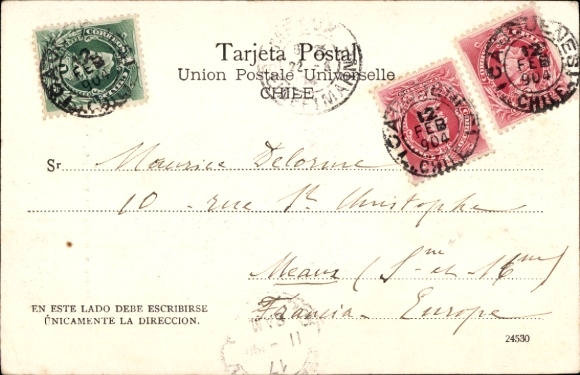 CORREOS
CHILE
12 FEB 904
CHILE
Tarjeta Postal
Union Postale Universelle
CHILE
12 FEB 904
CHILE
12 FEB 904
CHILE
Sr Maurice Delorme
10 - rue St Christophe
Meaux (S-et-Mme)
Francia - Europe
EN ESTE LADO DEBE ESCRIBIRSE
ÚNICAMENTE LA DIRECCION.
24530